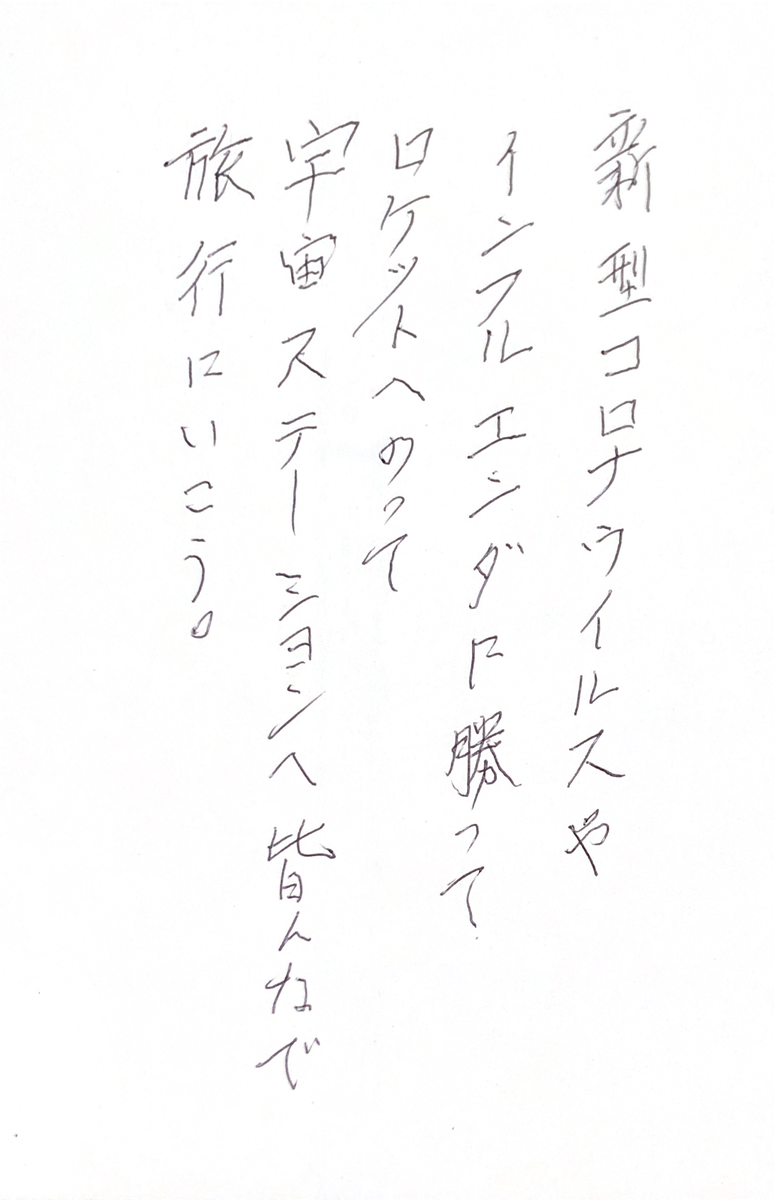 新型コロナウイルスや
インフルエンダに勝って
ロケットへのって
宇宙ステーションへ皆んなで
旅行にいこう。